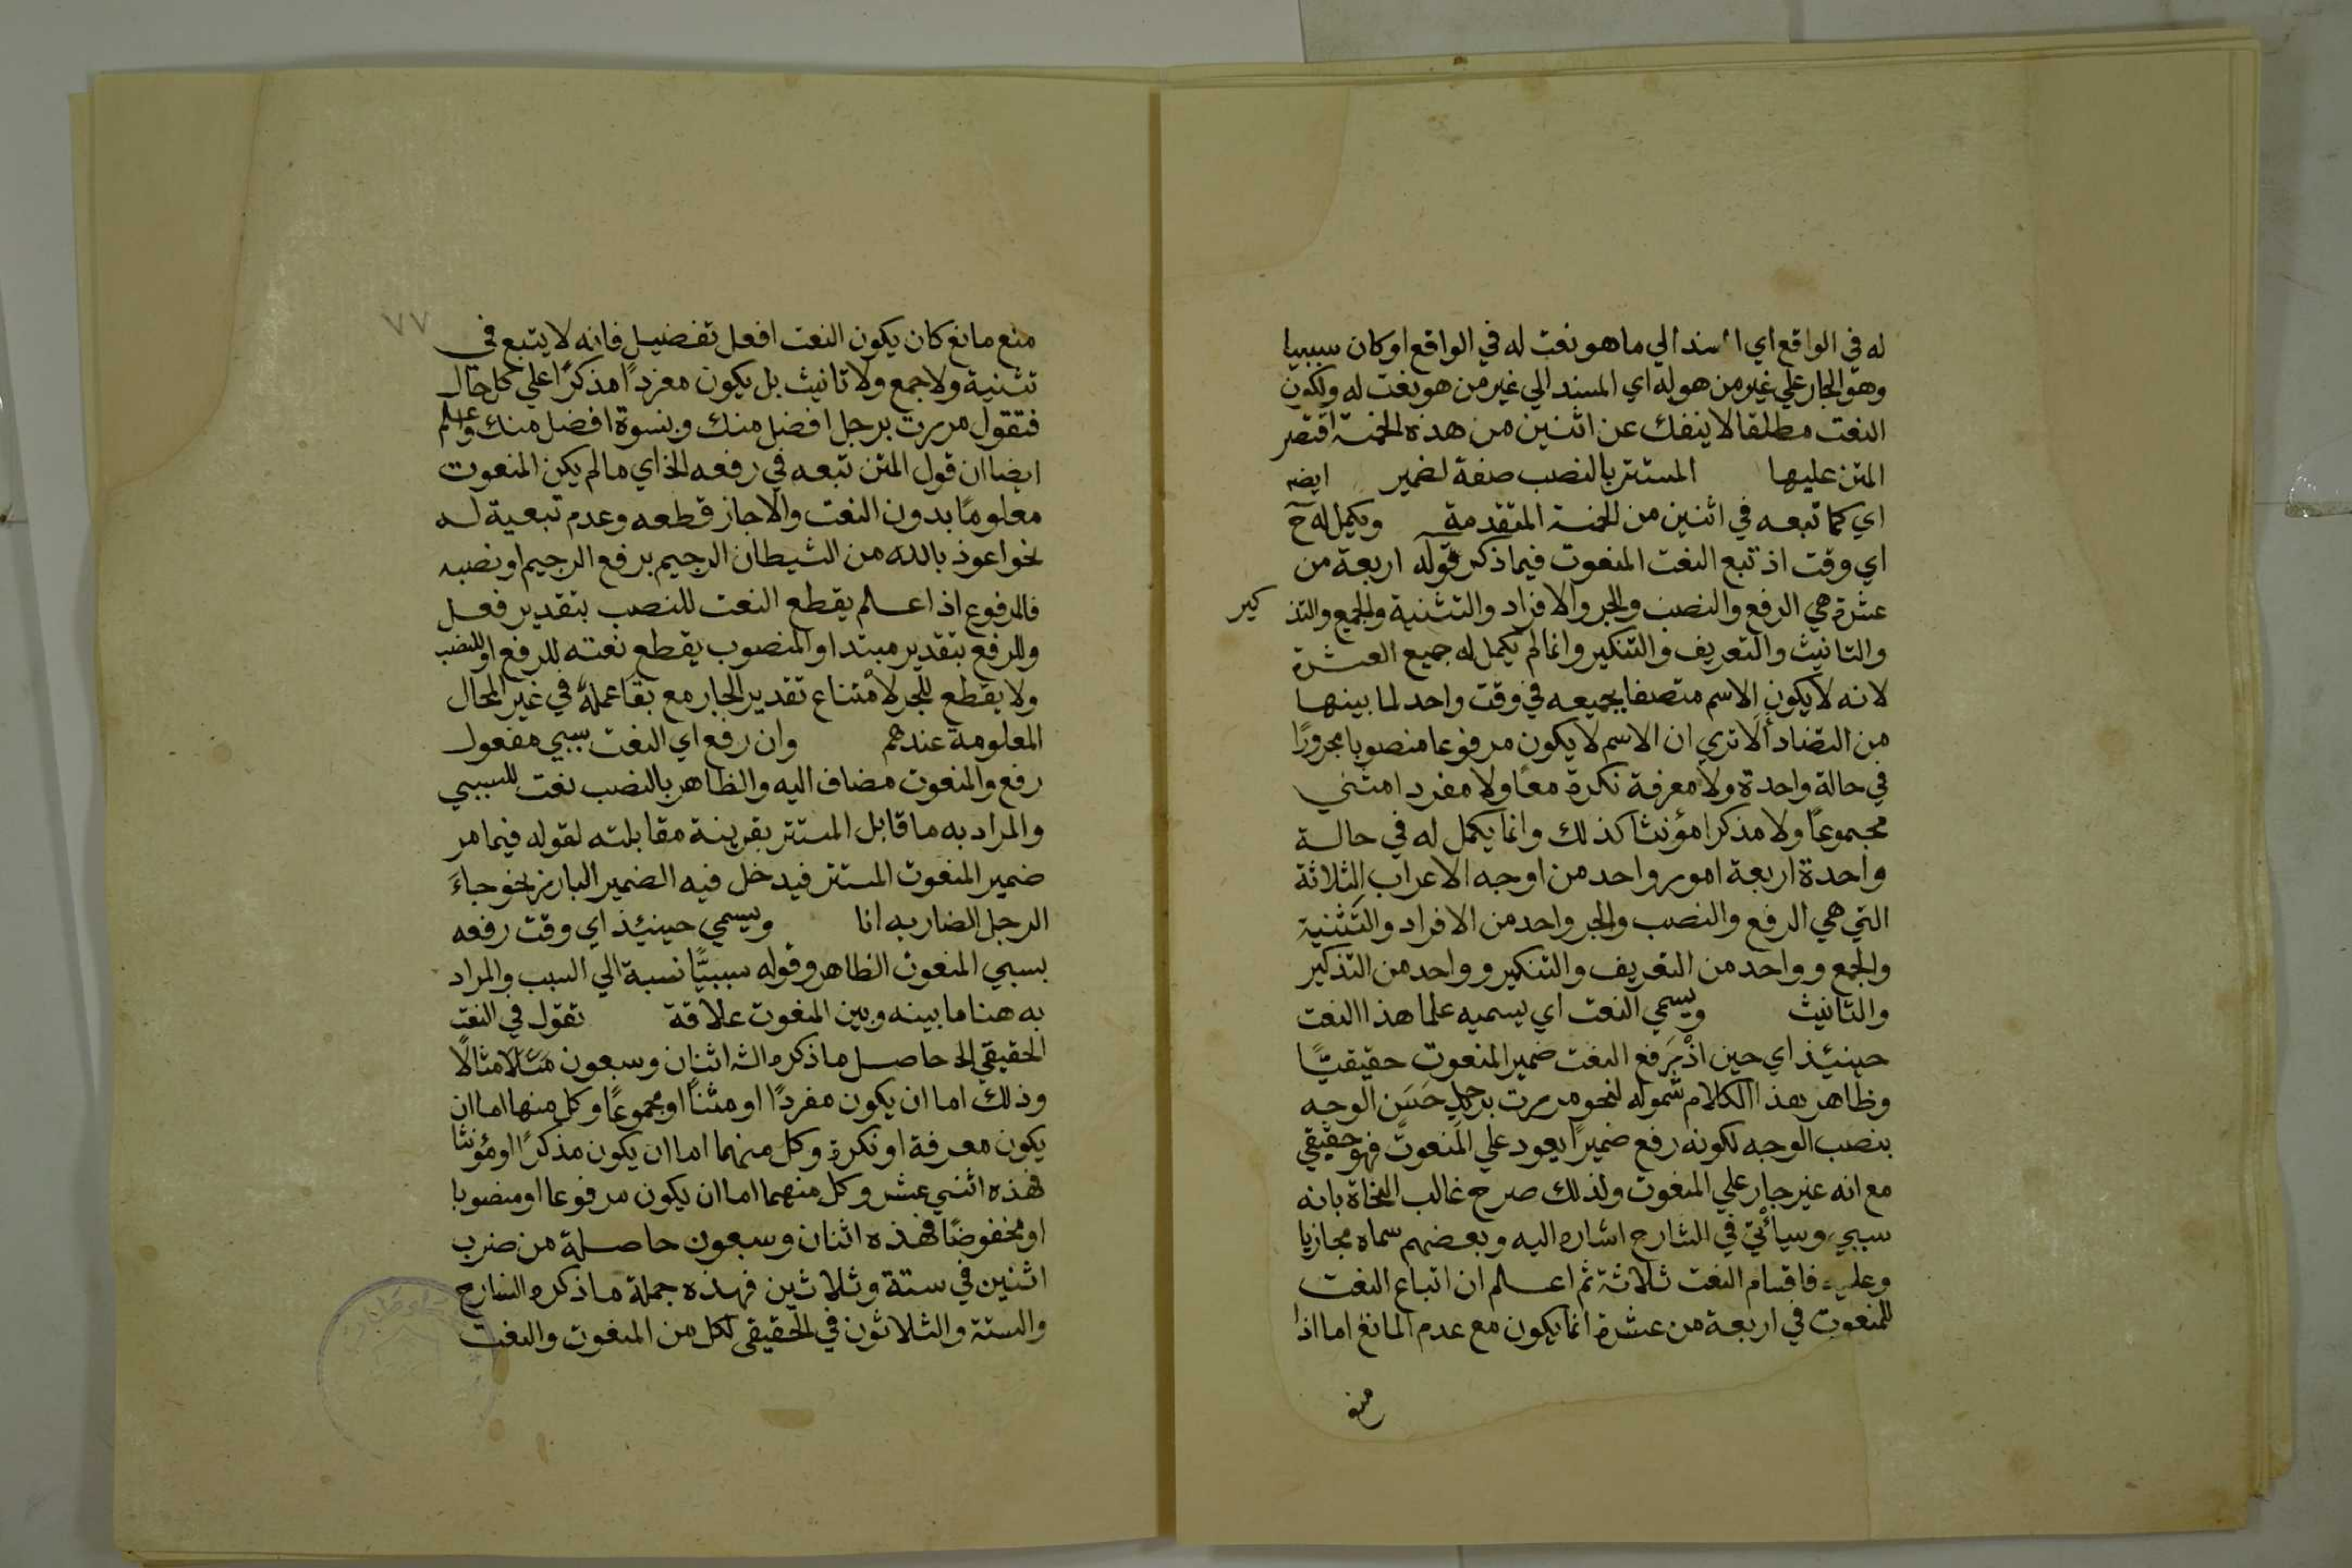 له في الواقع اي اسند الي ما هو نعت له في الواقع او كان سببيا
وهو الجار علي غير من هو له اي المسند الي غير من هو نعت له ولكون
النعت مطلقا لا ينفك عن اثنين من هذه الخمسة اقتصر
المتن عليها المستتر بالنصب صفة لضمير ايضه
اي كما تبعه في اثنين من الخمسة المتقدمة ويكمل له ح
اي وقت اذ تبع النعت المنعوت فيما ذكر قوله اربعة من
عشرة هي الرفع والنصب والجر والافراد والتثنية والجمع والتذكير
والتانيث والتعريف والتنكير وانما لم يكمل له جميع العشرة
لانه لا يكون الاسم متصفا بجميعه في وقت واحد لما بينها
من التضاد ألا تري ان الاسم لا يكون مرفوعا منصوبا مجرورًا
في حالة واحدة ولا معرفة نكرة معًا ولا مفردا مثني
مجموعًا ولا مذكرا مؤنثا كذلك وانما يكمل له في حالة
واحدة اربعة امور واحد من اوجه الاعراب الثلاثة
التي هي الرفع والنصب والجر واحد من الافراد والتثنية
والجمع وواحد من التعريف والتنكير وواحد من التذكير
والتانيث ويسمي النعت اي يسميه علما هذا النعت
حينئذ اي حين اذ يرفع النعت ضمير المنعوت حقيقيًّا
وظاهر هذا الكلام شموله لنحو مررت برجلٍ حَسَن الوجه
بنصب الوجه لكونه رفع ضميرًا يعود علي المنعوت فهو حقيقي
مع انه غير جار علي المنعوت ولذلك صرح غالب النحاة بانه
سببي وسيأتي في الشارح اشاره اليه وبعضهم سماه مجازيا
وعليه فاقسام النعت ثلاثة ثم اعلم ان اتباع النعت
للمنعوت في اربعة من عشرة انما يكون مع عدم المانع اما اذا
منع
٧٧
منع مانع كان يكون النعت افعل تفضيل فانه لا يتبع في
تثنية ولا جمع ولا تانيث بل يكون مفردًا مذكرًا علي كل حال
فتقول مررت برجل افضل منك وبنسوة افضل منك وعلم
ايضا ان قول المتن تبعه في رفعه الخ اي ما لم يكن المنعوت
معلومًا بدون النعت والا جاز قطعه وعدم تبعية له
نحو اعوذ بالله من الشيطان الرجيم برفع الرجيم او نصبه
فالمرفوع اذا علم يقطع النعت للنصب بتقدير فعل
وللرفع بتقدير مبتدا والمنصوب يقطع نعته للرفع او للنصب
ولا يقطع للجر لامتناع تقدير الجار مع بقا عمله في غير المحال
المعلومة عندهم وان رفع اي النعت سببي مفعول
رفع والمنعوت مضاف اليه والظاهر بالنصب نعت للسببي
والمراد به ما قابل المستتر بقرينة مقابلته لقوله فيما مر
ضمير المنعوت المستتر فيدخل فيه الضمير البارز نحو جاءَ
الرجل الضاربه انا ويسمي حينئذ اي وقت رفعه
بسببي المنعوت الظاهر وقوله سببيًّا نسبة الي السبب والمراد
به هنا ما بينه وبين المنعوت علاقة تقول في النعت
الحقيقي الخ حاصل ما ذكره الش اثنان وسبعون مثلا مثالًا
وذلك اما ان يكون مفردًا او مثنًا او مجموعًا وكل منها اما ان
يكون معرفة او نكرة وكل منهما اما ان يكون مذكرًا او مؤنثا
فهذه اثني عشر وكل منهما اما ان يكون مرفوعا او منصوبا
او مخفوضًا فهذه اثنان وسبعون حاصلة من ضرب
اثنين في ستة وثلاثين فهذه جملة ما ذكره الشارح
والستة والثلاثون في الحقيقي لكل من المنعوت والنعت